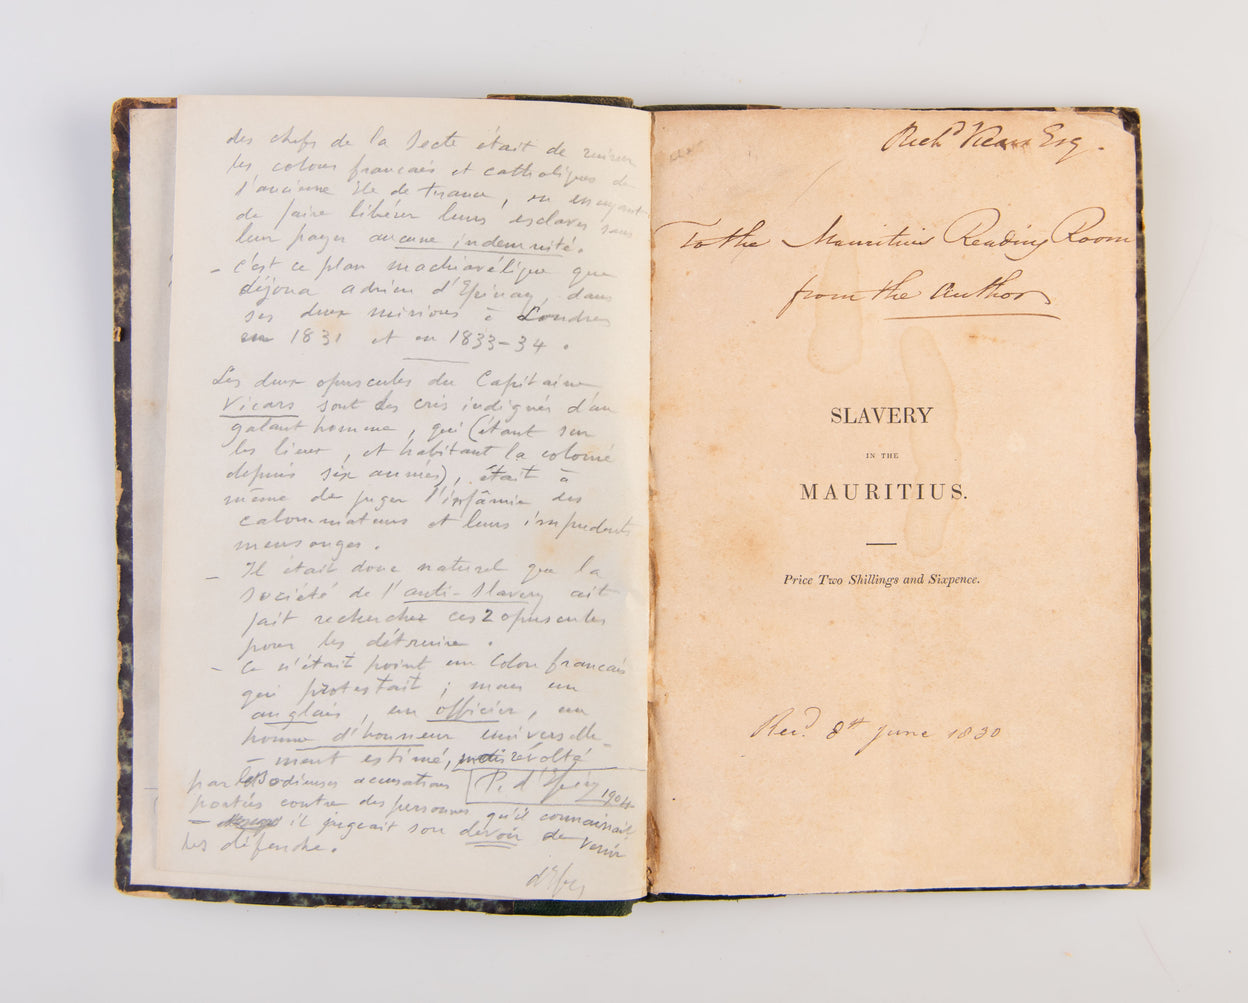 des chefs de la Secte était de ruiner
les colons français et catholiques de
l'ancienne île de France, en essayant
de faire libérer leurs esclaves sans
leur payer aucune indemnité.
- C'est ce plan machiavélique que
déjoua Adrien d'Epinay, dans
ses deux missions à Londres
en 1831 et en 1833-34.
Les deux opuscules du Capitaine
Vicars sont des cris indignés d'un
galant homme, qui (étant sur
les lieux, et habitant la colonie
depuis six années), était à
même de juger l'infâmie des
calomniateurs et leurs impudents
mensonges.
- Il était donc naturel que la
Société de l'anti-Slavery ait
fait rechercher ces 2 opuscules
pour les détruire.
- Ce n'était point un Colon français
qui protestait ; mais un
anglais, un officier, un
homme d'honneur universelle-
-ment estimé, révolté
par les odieuses accusations
P. d'Epinay 1904
portées contre des personnes qu'il connaissait,
- il jugeait son devoir de venir
les défendre.
Rich.d Esq.
To the Mauritius Reading Room
from the author
SLAVERY
IN THE
MAURITIUS.
Price Two Shillings and Sixpence.
Rec.d 8th June 1830